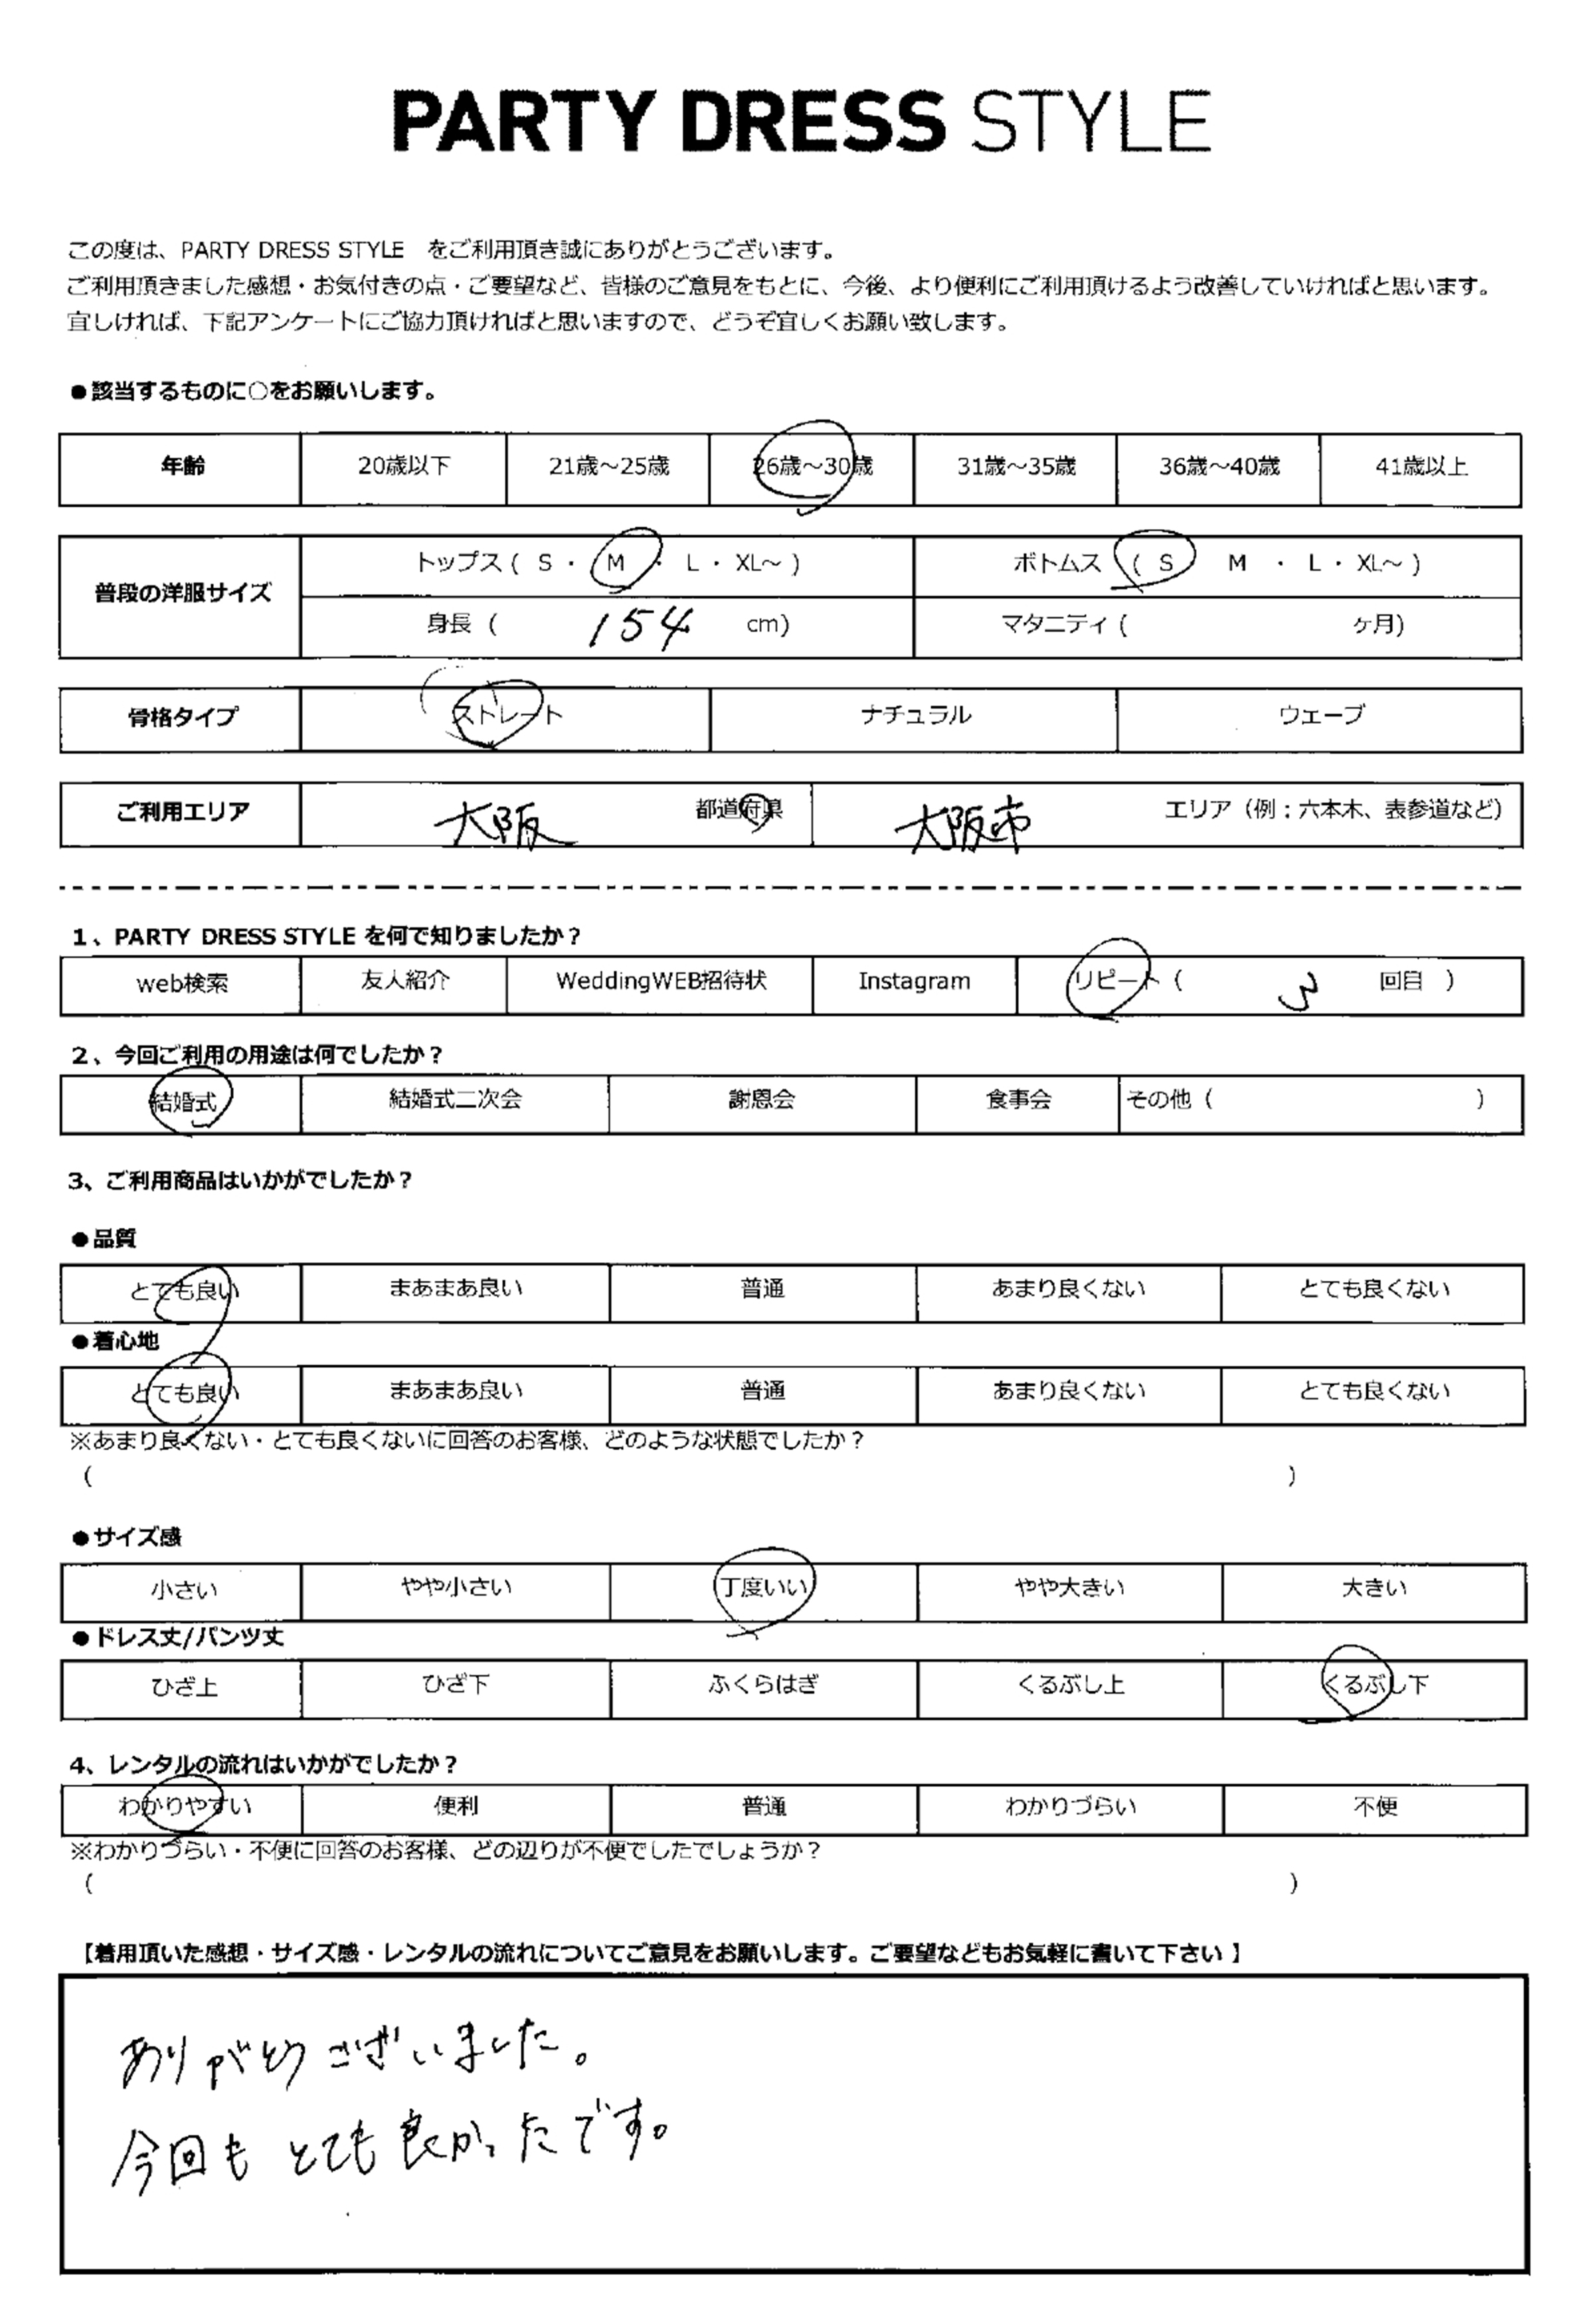 PARTY DRESS STYLE
この度は、PARTY DRESS STYLE をご利用頂き誠にありがとうございます。
ご利用頂きました感想・お気付きの点・ご要望など、皆様のご意見をもとに、今後、より便利にご利用頂けるよう改善していければと思います。
宜しければ、下記アンケートにご協力頂ければと思いますので、どうぞ宜しくお願い致します。
●該当するものに○をお願いします。
年齢 20歳以下 21歳～25歳 26歳～30歳 31歳～35歳 36歳～40歳 41歳以上
普段の洋服サイズ トップス ( S ・ M ・ L ・ XL～ ) ボトムス ( S M ・ L ・ XL～ )
身長 ( 154 cm) マタニティ ( ヶ月)
骨格タイプ ストレート ナチュラル ウェーブ
ご利用エリア 大阪 都道府県 大阪市 エリア（例：六本木、表参道など）
1、PARTY DRESS STYLE を何で知りましたか？
web検索 友人紹介 WeddingWEB招待状 Instagram リピート ( 3 回目 )
2、今回ご利用の用途は何でしたか？
結婚式 結婚式二次会 謝恩会 食事会 その他 ( )
3、ご利用商品はいかがでしたか？
●品質
とても良い まあまあ良い 普通 あまり良くない とても良くない
●着心地
とても良い まあまあ良い 普通 あまり良くない とても良くない
※あまり良くない・とても良くないに回答のお客様、どのような状態でしたか？
( )
●サイズ感
小さい やや小さい 丁度いい やや大きい 大きい
●ドレス丈/パンツ丈
ひざ上 ひざ下 ふくらはぎ くるぶし上 くるぶし下
4、レンタルの流れはいかがでしたか？
わかりやすい 便利 普通 わかりづらい 不便
※わかりづらい・不便に回答のお客様、どの辺りが不便でしたでしょうか？
( )
【着用頂いた感想・サイズ感・レンタルの流れについてご意見をお願いします。ご要望などもお気軽に書いて下さい】
ありがとうございました。
今回もとても良かったです。